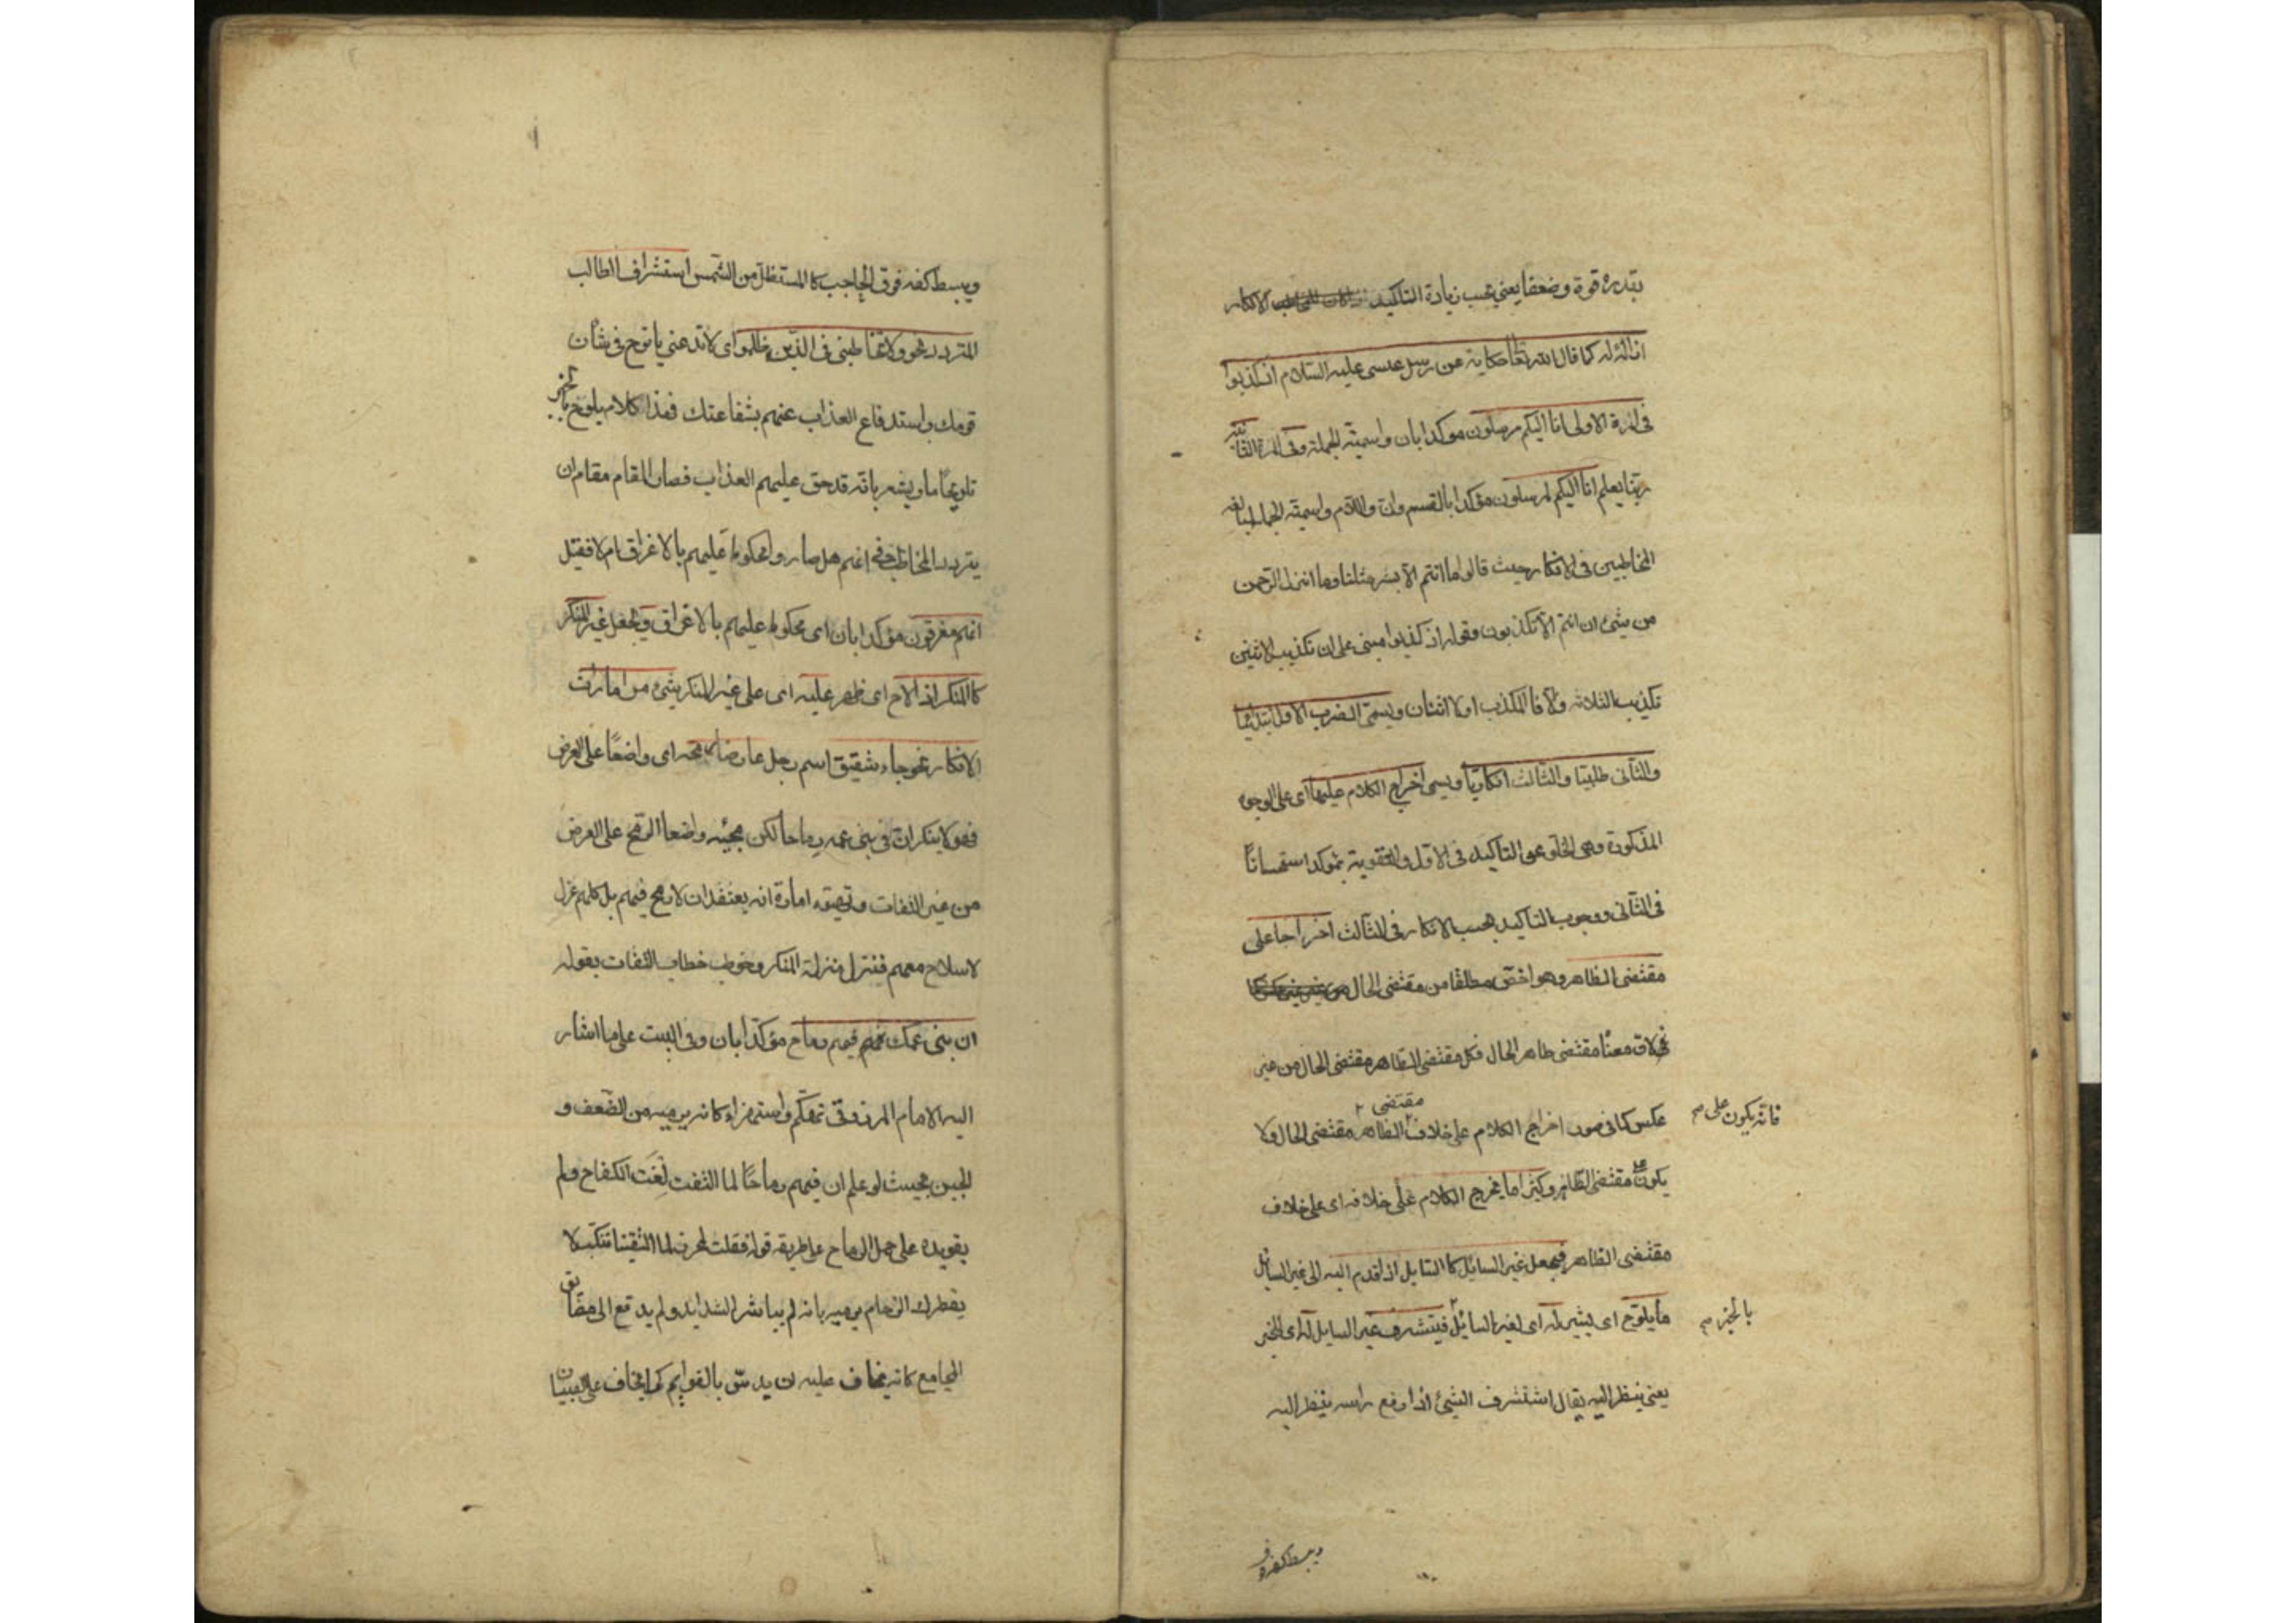 بقدره قوة وضعفا يعني يجب زيادة التاكيد الانكار
ازالة له كما قال الله تعالى حكاية عن رسل عيسى عليه السلام اذ كذبوا
في المرة الاولى انا اليكم مرسلون مؤكدا بان واسمية الجملة وفي المرة الثانية
ربنا يعلم انا اليكم لمرسلون مؤكدا بالقسم وان واللام واسمية الجملة لمبالغة
المخاطبين في الانكار حيث قالوا ما انتم الا بشر مثلنا وما انزل الرحمن
من شئ ان انتم الا تكذبون وقوله اذ كذبوا مبنى على ان تكذيب الاثنين
تكذيب الثلاثة والا فالمكذب اولا اثنان ويسمى الضرب الاول ابتدائيا
والثاني طلبيا والثالث انكاريا ويسمى اخراج الكلام عليها اى على الوجوه
المذكورة وهى الخلو عن التاكيد في الاول والتقوية بمؤكد استحسانا
في الثاني ووجوب التاكيد بحسب الانكار في الثالث اخراجا على
مقتضى الظاهر وهو اخص مطلقا من مقتضى الحال
لان معناه مقتضى ظاهر الحال فكل مقتضى الظاهر مقتضى الحال من غير
عكس كما في صور اخراج الكلام على خلاف مقتضى الظاهر مقتضى الحال ولا
فانه يكون على
يكون مقتضى الظاهر وكثيرا ما يخرج الكلام على خلافه اى على خلاف
مقتضى الظاهر فيجعل غير السائل كالسايل اذا قدم اليه الى غير السائل
ما يلوح اى يشير له اى لغير السائل فيستشرف غير السايل له اى للخبر
بالخبر
يعني ينظر اليه يقال استشرف الشئ اذا رفع راسه ينظر اليه
ويبسط كفه فوق
ويبسط كفه فوق الحاجب كالمستظل من الشمس استشراف الطالب
المتردد نحو ولا تخاطبني في الذين ظلموا اى لا تدعني يا نوح في شأن
قومك واستدفاع العذاب عنهم بشفاعتك فهذا كلام يلوح بالخبر
تلويحا ما ويشعر بانه قد حق عليهم العذاب فصار المقام مقام ان
يتردد المخاطب في انهم هل صاروا محكوما عليهم بالاغراق ام لا فقيل
انهم مغرقون مؤكدا بان اى محكوم عليهم بالاغراق ويجعل غير المنكر
كالمنكر اذا لاح اى ظهر عليه اى على غير المنكر شئ من امارات
الانكار نحو جاء شقيق اسم رجل عارضا رمحه اى واضعا على العرض
فهو لا ينكر ان في بني عمه رماحا لكن مجيئه واضعا الرمح على العرض
من غير التفات وتهيؤ امارة انه يعتقد ان لا رمح فيهم بل كلهم عزل
لا سلاح معهم فنزل منزلة المنكر وخوطب خطاب التفات بقوله
ان بني عمك فيهم رماح مؤكدا بان وفي البيت على ما اشار
اليه الامام المرزوقي تهكم واستهزاء كانه يرميه من الضعف و
الجبن بحيث لو علم ان فيهم رماحا لما التفت لفت الكفاح ولم
يقو يده على حمل الرماح على طريقة قوله فقلت لمحرز لما التقينا تنكب لا
يقطرك الزحام يرميه بانه لم يباشر الشدايد ولم يدفع الى مضايق
المجامع كانه يخاف عليه ان يدس بالقوايم كما يخاف على الصبيان